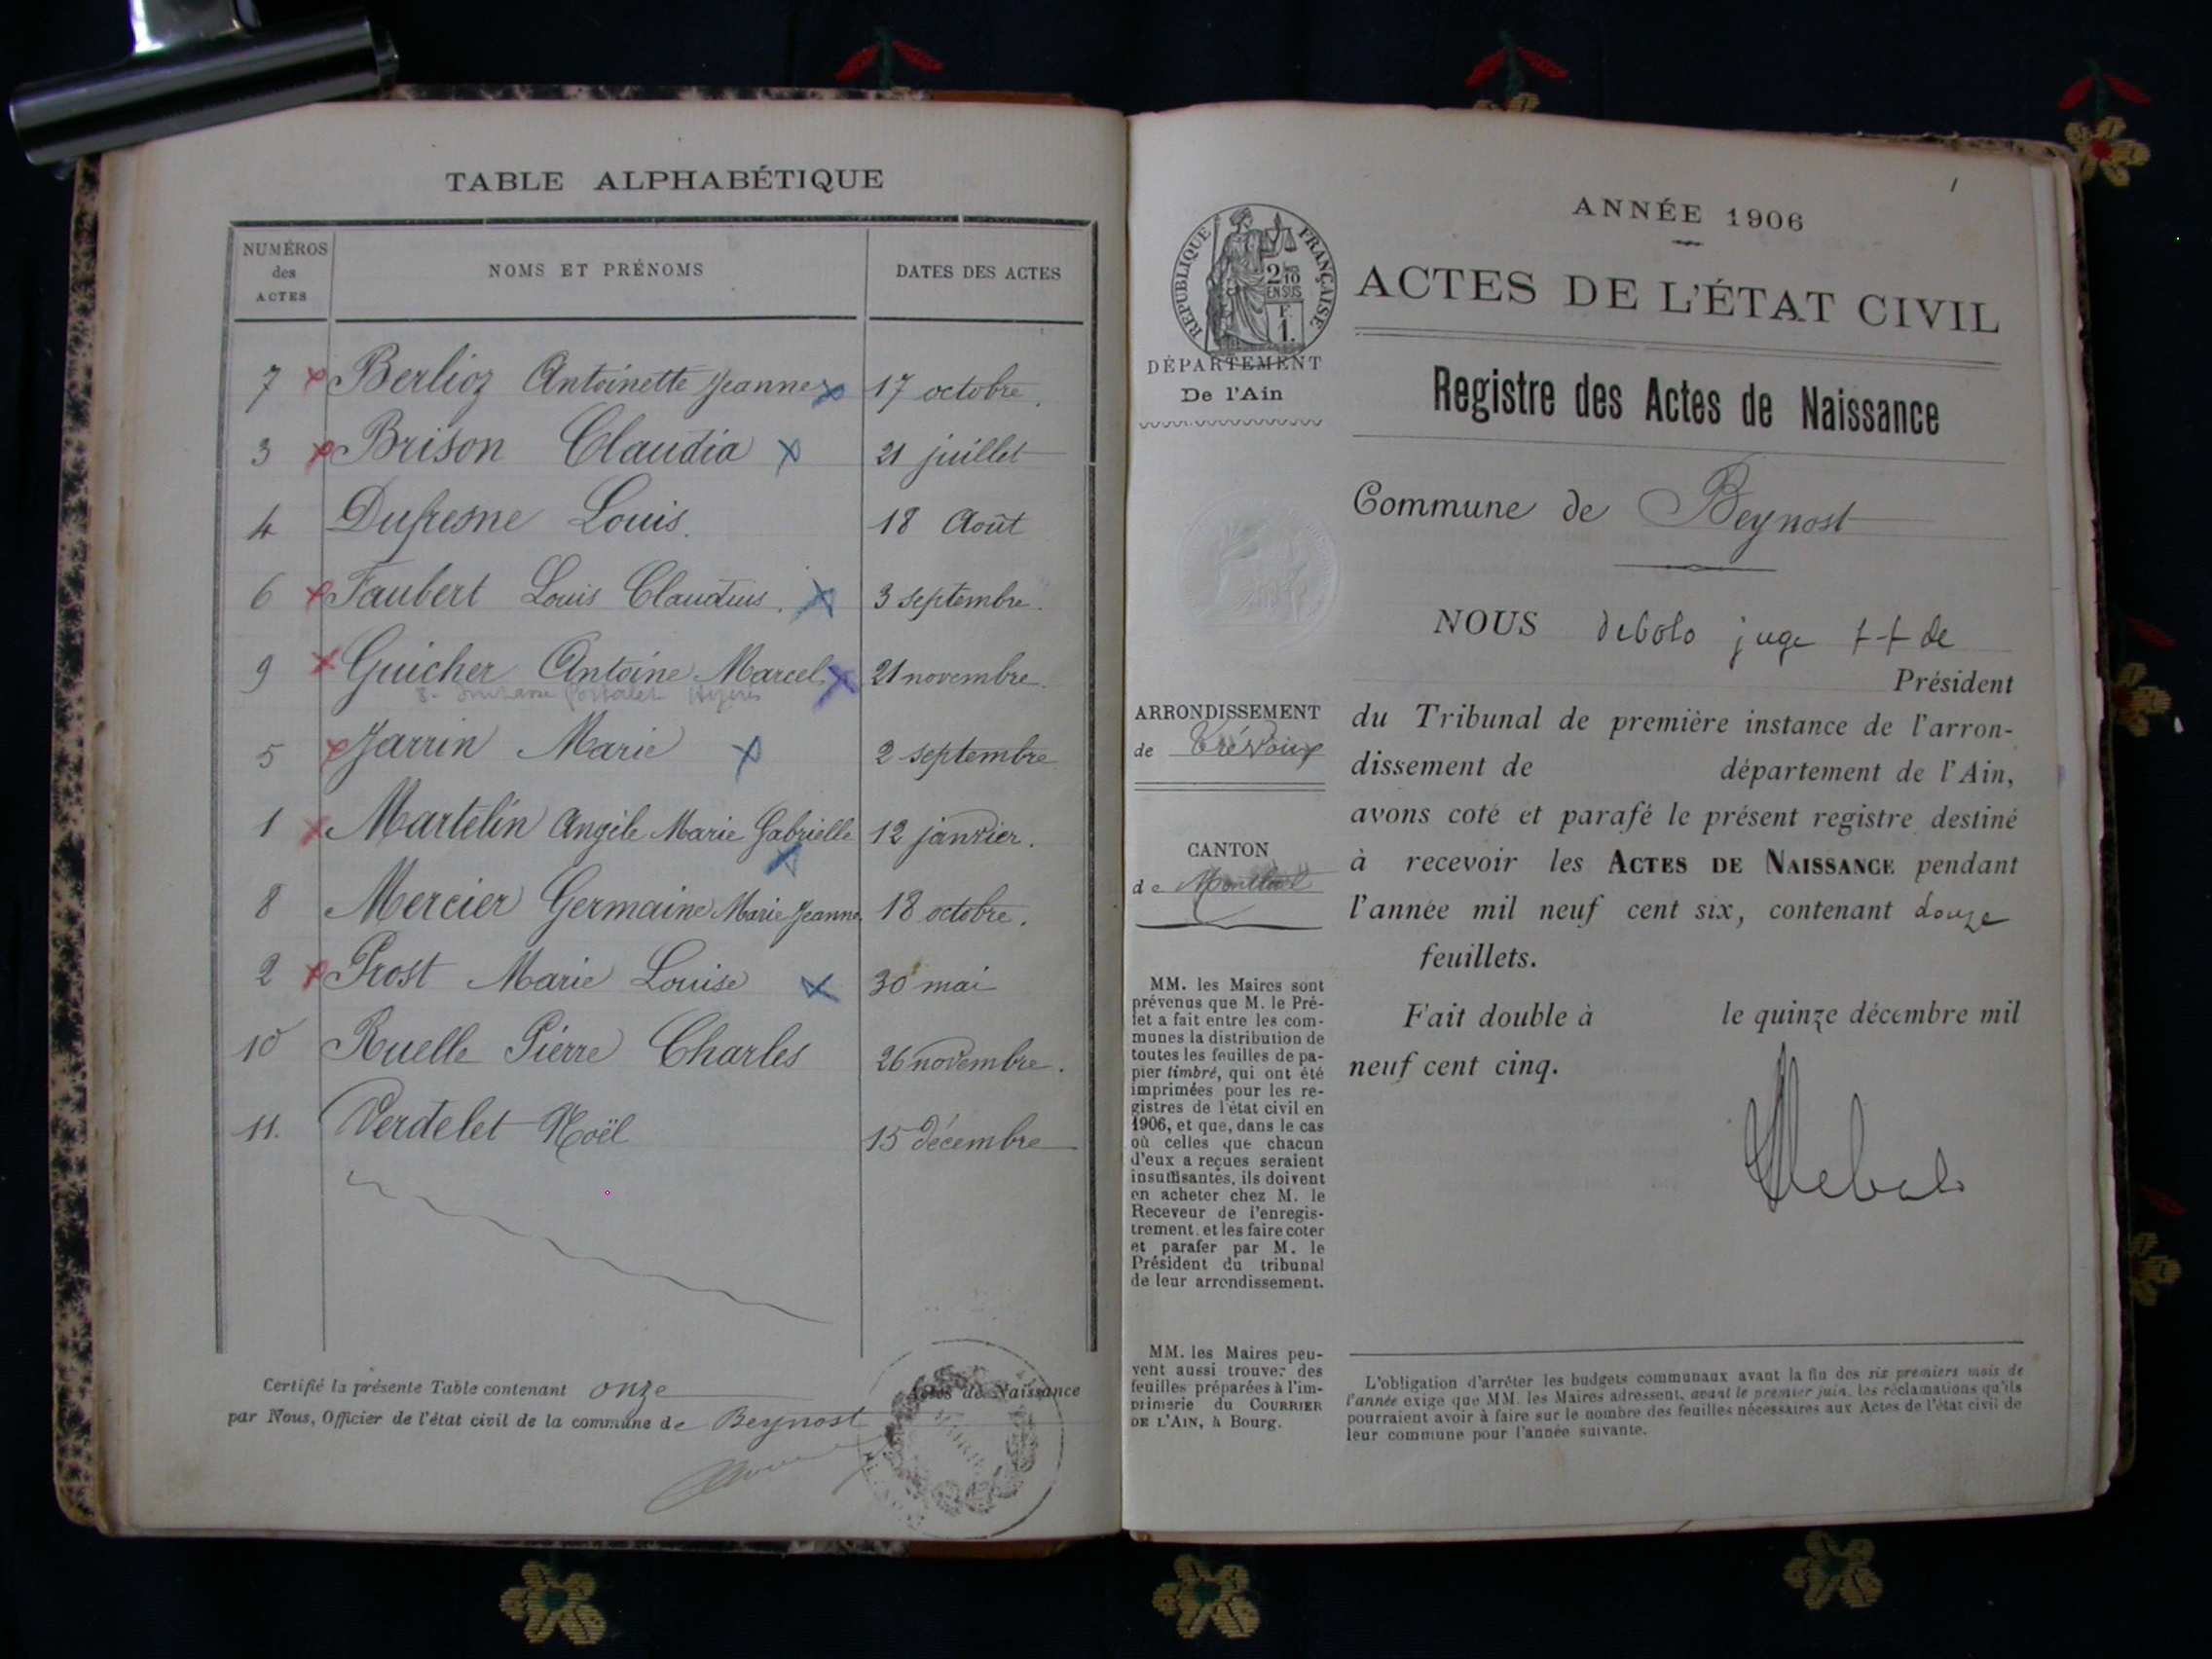 TABLE ALPHABÉTIQUE
NUMÉROS des ACTES NOMS ET PRÉNOMS DATES DES ACTES
7 Berlioz Antoinette Jeanne 17 octobre.
3 Brison Claudia 21 juillet
4 Dufresne Louis. 18 Août
6 Faubert Louis Claudius. 3 septembre.
9 Guicher Antoine Marcel 21 novembre.
5 Jarrin Marie 2 septembre
1 Martelin Angèle Marie Gabrielle 12 janvier.
8 Mercier Germaine Marie Jeanne 18 octobre.
2 Prost Marie Louise 30 mai
10 Ruelle Pierre Charles 26 novembre.
11. Verdelet Noël 15 décembre
Certifié la présente Table contenant onze Actes de Naissance
par Nous, Officier de l'état civil de la commune de Beynost
1
ANNÉE 1906
RÉPUBLIQUE FRANÇAISE
2/10
EN SUS
F.
1.
ACTES DE L'ÉTAT CIVIL
DÉPARTEMENT
De l'Ain
Registre des Actes de Naissance
Commune de Beynost
NOUS debolo juge ff de
Président
ARRONDISSEMENT
de Trévoux
du Tribunal de première instance de l'arron-
dissement de département de l'Ain,
avons coté et parafé le présent registre destiné
CANTON
de Montluel
à recevoir les ACTES DE NAISSANCE pendant
l'année mil neuf cent six, contenant douze
feuillets.
Fait double à le quinze décembre mil
neuf cent cinq.
MM. les Maires sont
prévenus que M. le Pré-
fet a fait entre les com-
munes la distribution de
toutes les feuilles de pa-
pier timbré, qui ont été
imprimées pour les re-
gistres de l'état civil en
1906, et que, dans le cas
où celles que chacun
d'eux a reçues seraient
insuffisantes, ils doivent
en acheter chez M. le
Receveur de l'enregis-
trement, et les faire coter
et parafer par M. le
Président du tribunal
de leur arrondissement.
MM. les Maires peu-
vent aussi trouver des
feuilles préparées à l'im-
primerie du COURRIER
DE L'AIN, à Bourg.
L'obligation d'arrêter les budgets communaux avant la fin des six premiers mois de
l'année exige que MM. les Maires adressent, avant le premier juin, les réclamations qu'ils
pourraient avoir à faire sur le nombre des feuilles nécessaires aux Actes de l'état civil de
leur commune pour l'année suivante.